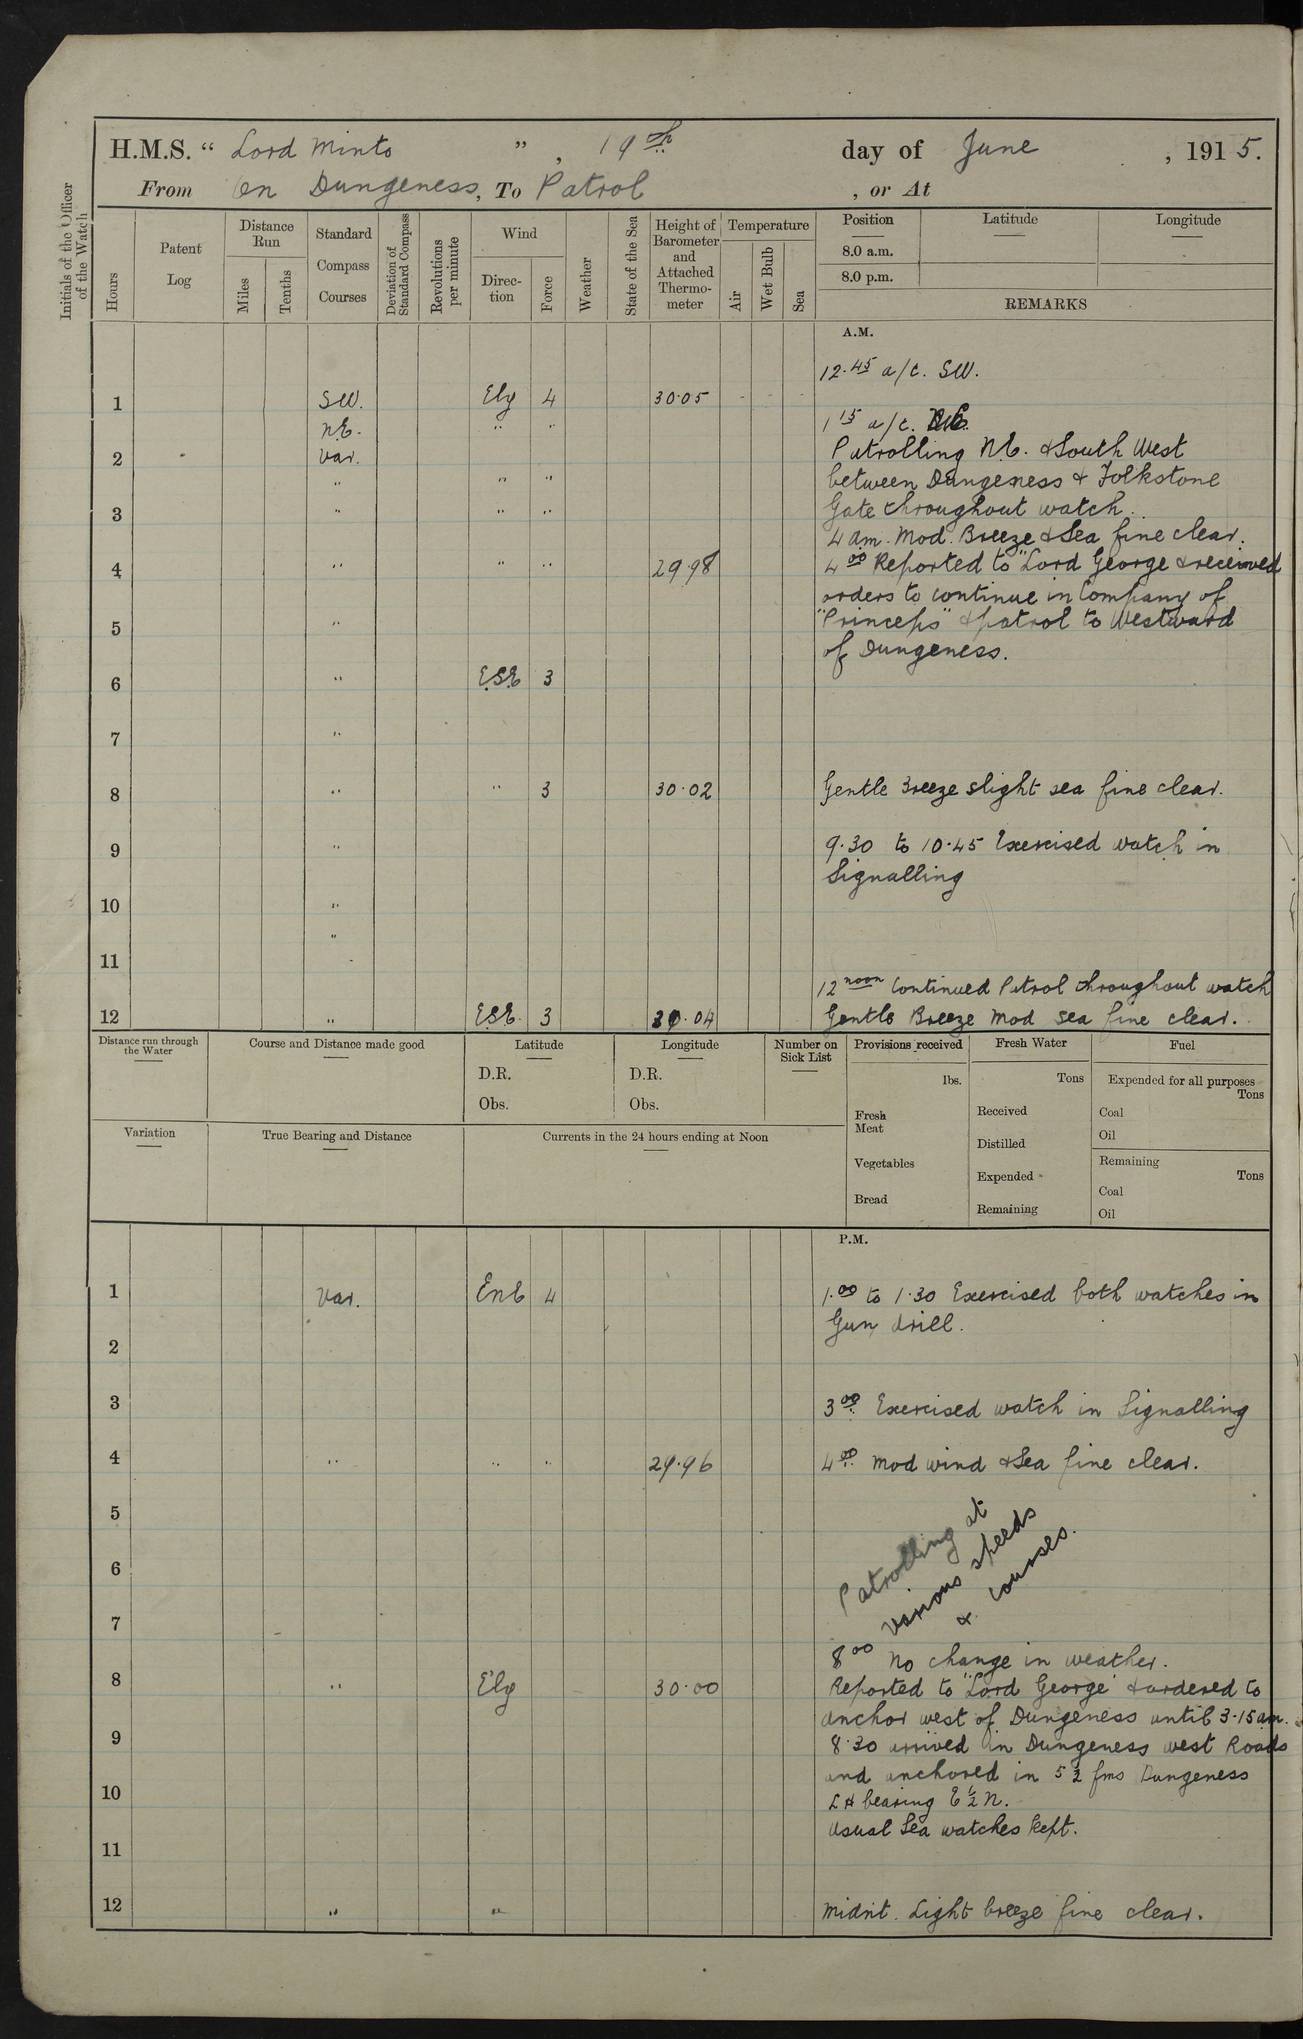 H.M.S. “ Lord Minto ” , 19th day of June , 1915.
From On Dungeness , To Patrol , or At
Initials of the Officer of the Watch
Hours
Patent Log
Distance Run
Miles
Tenths
Standard Compass Courses
Deviation of Standard Compass
Revolutions per minute
Wind
Direction
Force
Weather
State of the Sea
Height of Barometer and Attached Thermometer
Temperature
Air
Wet Bulb
Sea
Position Latitude Longitude
8.0 a.m.
8.0 p.m.
REMARKS
A.M.
12.45 a/c. SW.
1 SW. Ely 4 30.05
1 15 a/c. N.E.
N.E. " "
Patrolling N.E. & South West
2 Var.
between Dungeness & Folkstone
" " "
Gate throughout watch.
3 " " "
4 am. Mod. Breeze & Sea fine clear.
4 " " " 29.98
4 00 Reported to "Lord George & received
orders to continue in Company of
5 "
"Princeps" & patrol to Westward
of Dungeness.
6 " E.S.E 3
7 "
8 " " 3 30.02 Gentle Breeze slight sea fine clear.
9 " 9.30 to 10.45 Exercised watch in
Signalling
10 "
"
11
12 noon Continued Patrol throughout watch
12 " E.S.E. 3 30.04 Gentle Breeze Mod sea fine clear.
Distance run through the Water
Course and Distance made good
Latitude
D.R.
Obs.
Longitude
D.R.
Obs.
Number on Sick List
Provisions received
lbs.
Fresh Meat
Vegetables
Bread
Fresh Water
Tons
Received
Distilled
Expended
Remaining
Fuel
Expended for all purposes
Tons
Coal
Oil
Remaining
Tons
Coal
Oil
Variation
True Bearing and Distance
Currents in the 24 hours ending at Noon
P.M.
1 Var. EnE 4 1.00 to 1.30 Exercised both watches in
Gun drill.
2
3 3 00 Exercised watch in Signalling
4 " " " 29.96 4 00 Mod wind & Sea fine clear.
5
Patrolling at
various speeds
& courses.
6
7
8 00 No change in weather.
8 " Ely 30.00 Reported to "Lord George" & ordered to
anchor west of Dungeness until 3.15 am.
9 8.30 arrived in Dungeness west Roads
and anchored in 5 ½ fms Dungeness
10 L H bearing E ½ N.
usual Sea watches kept.
11
12 " " Midnt. Light breeze fine clear.